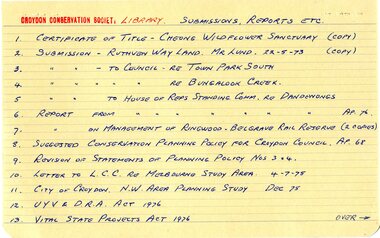 CROYDON CONSERVATION SOCIETY. LIBRARY. SUBMISSIONS, REPORTS ETC.
1. CERTIFICATE OF TITLE - CHEONG WILDFLOWER SANCTUARY (COPY)
2. SUBMISSION - RUTHVEN WAY LAND. MR LUND. 22-5-73 (COPY)
3. " " TO COUNCIL - RE TOWN PARK SOUTH
4. " " " " RE BUNGALOOK CREEK.
5. " " TO HOUSE OF REPS STANDING COMM. RE DANDENONGS
6. REPORT FROM " " " " " " AP. 76
7. " ON MANAGEMENT OF RINGWOOD-BELGRAVE RAIL RESERVE (2 COPIES)
8. SUGGESTED CONSERVATION PLANNING POLICY FOR CROYDON COUNCIL. AP. 68
9. REVISION OF STATEMENTS OF PLANNING POLICY NOS 3 & 4.
10. LETTER TO L.C.C. RE MELBOURNE STUDY AREA. 4-7-75
11. CITY OF CROYDON. N.W. AREA PLANNING STUDY DEC 75
12. U.Y.V & D.R.A. ACT 1976
13. VITAL STATE PROJECTS ACT 1976 OVER →